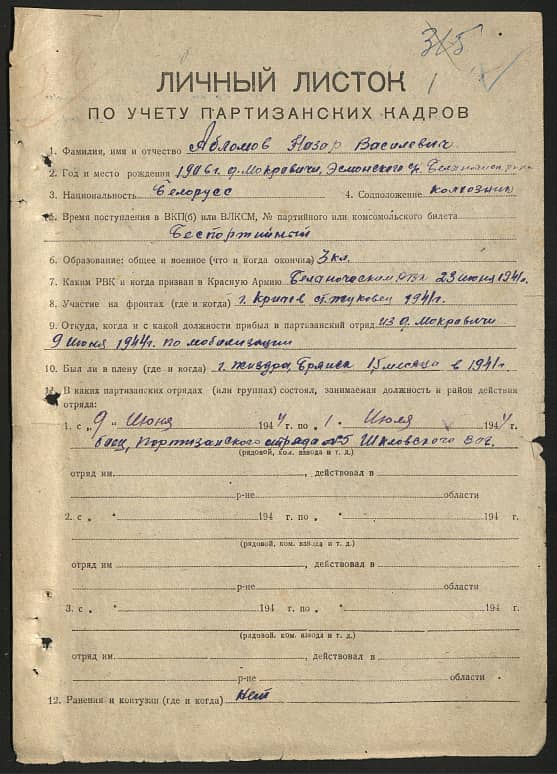 315
ЛИЧНЫЙ ЛИСТОК
ПО УЧЕТУ ПАРТИЗАНСКИХ КАДРОВ
1. Фамилия, имя и отчество Абламов Назар Василевич
2. Год и место рождения 1906 г. д. Мокравичи, Эсмонского с/с
3. Национальность Белорусс 4. Соцположение колхозник
5. Время поступления в ВКП(б) или ВЛКСМ, № партийного или комсомольского билета
Беспортийный
6. Образование: общее и военное (что и когда окончил) 3 кл.
7. Каким РВК и когда призван в Красную Армию 23 июня 1941г.
8. Участие на фронтах (где и когда) г. Кричев ст. Жуковец 1941г.
9. Откуда, когда и с какой должности прибыл в партизанский отряд из д. Мокравичи
9 Июня 1944г. по мобилизации
10. Был ли в плену (где и когда) г. Жиздра, Брянск 1,5 месяца в 1941г.
11. В каких партизанских отрядах (или группах) состоял, занимаемая должность и район действия
отряда:
1. с „9„ Июня 1944 г. по „1 „ Июля 1944 г.
боец, Партизанского отряда №5 Шкловского
(рядовой, ком. взвода и т. д.)
отряд им , действовал в
р-не области
2. с „ „ 194 г. по „ „ 194 г.
(рядовой, ком. взвода и т. д.)
отряд им , действовал в
р-не области
3. с „ „ 194 г. по „ „ 194 г.
(рядовой, ком. взвода и т. д.)
отряд им , действовал в
р-не области
12. Ранения и контузии (где и когда) нет